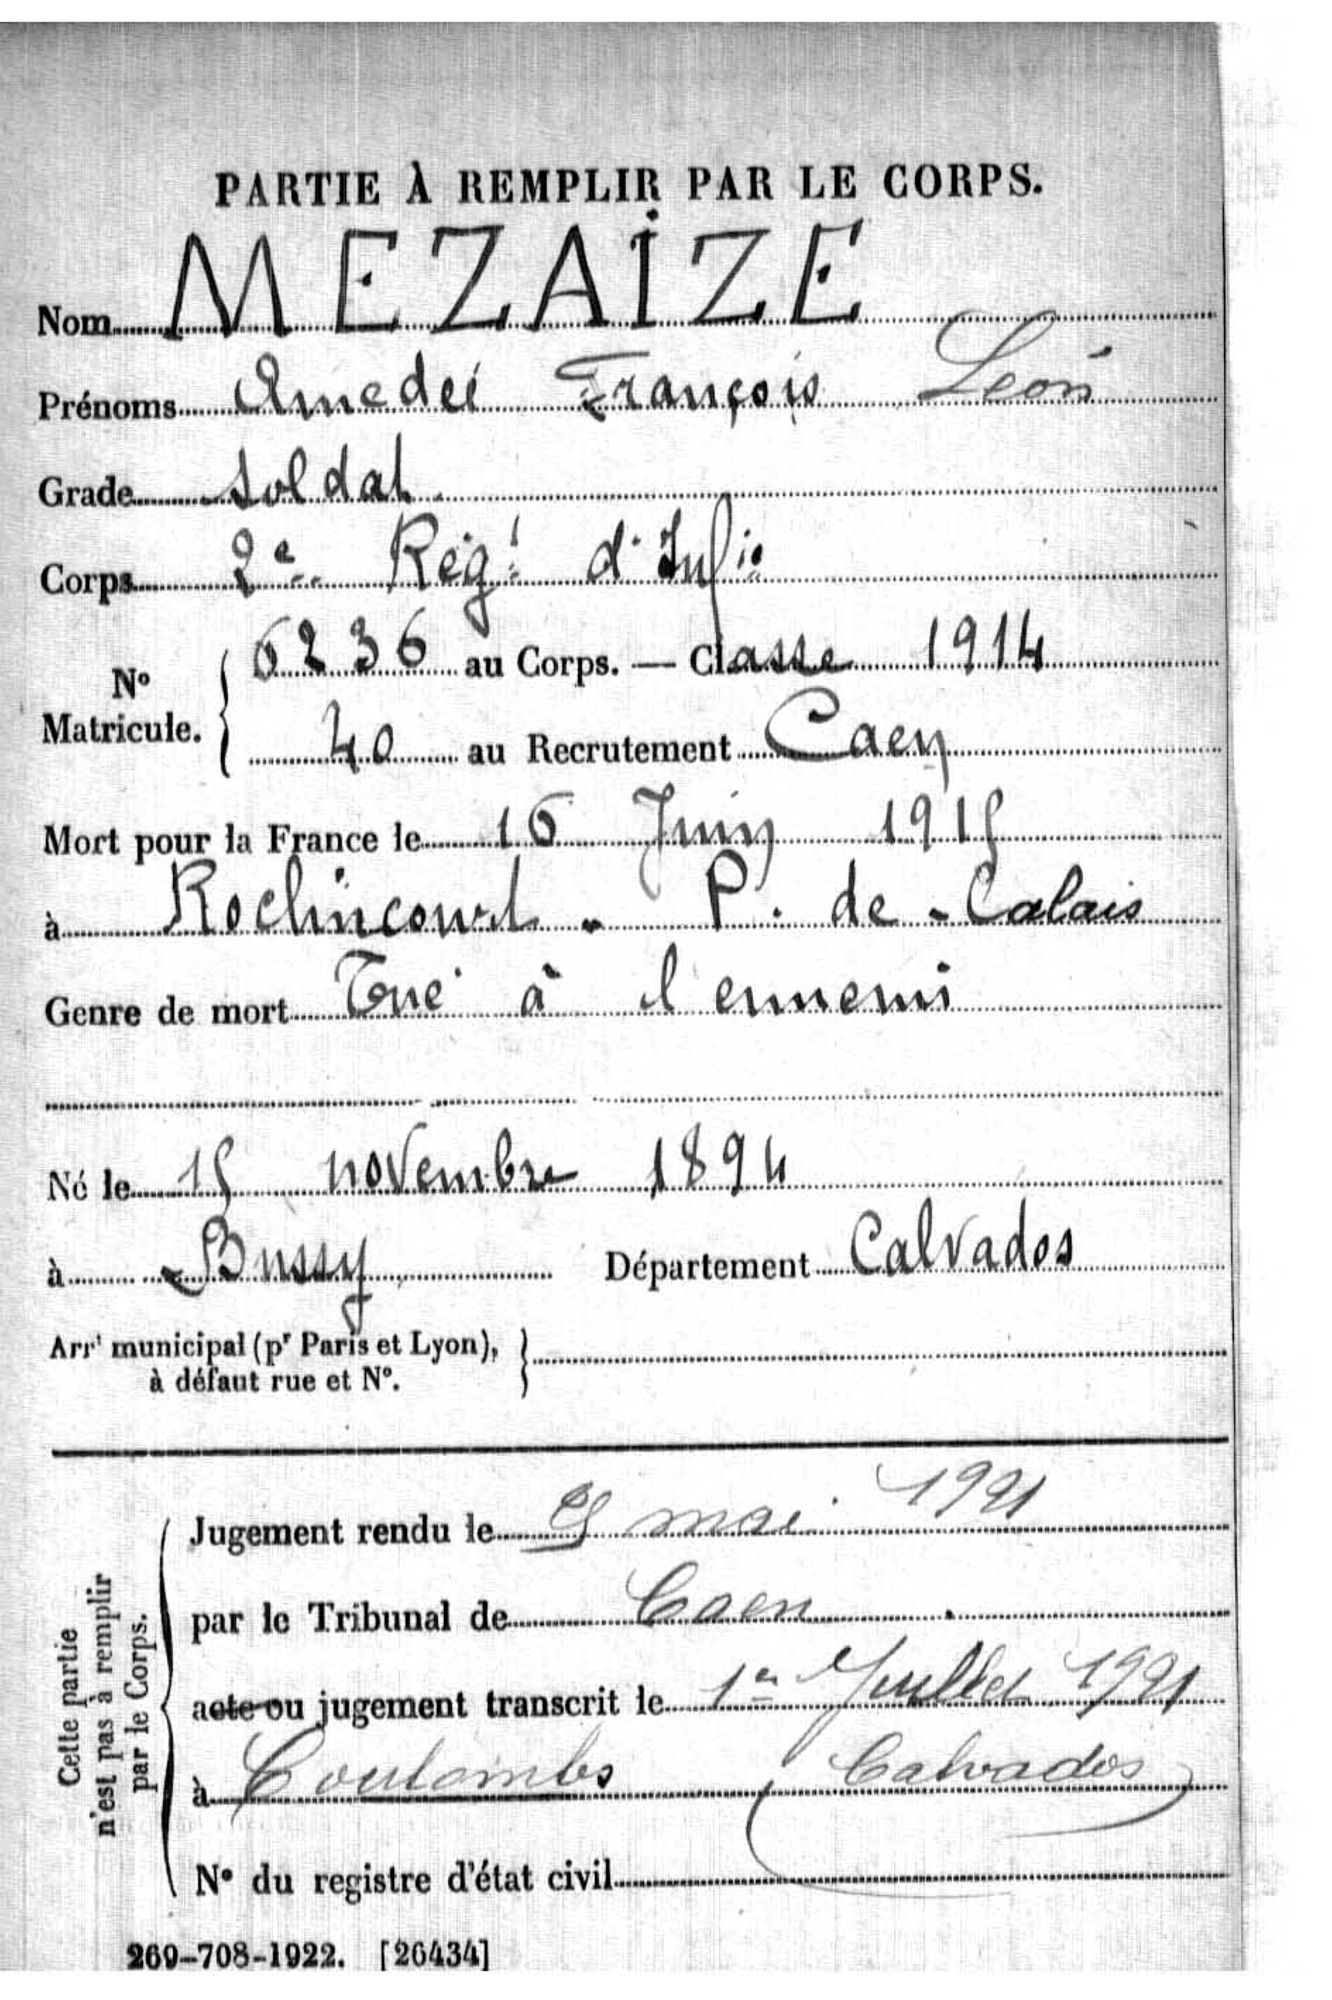 PARTIE À REMPLIR PAR LE CORPS.
Nom MEZAIZE
Prénoms Amedeé François Léon
Grade Soldat
Corps 2e Régt d'Infie
No Matricule. { 6236 au Corps. — Classe 1914
40 au Recrutement Caen
Mort pour la France le 16 Juin 1915
à Roclincourt - P. de - Calais
Genre de mort Tué à l'ennemi
Né le 15 novembre 1894
à Bussy Département Calvados
Arrt municipal (pr Paris et Lyon), à défaut rue et No. }
Cette partie n'est pas à remplir par le Corps.
Jugement rendu le mai 1921
par le Tribunal de Caen
acte ou jugement transcrit le 1er Juillet 1921
à Coulombs (Calvados)
No du registre d'état civil
269-708-1922. [26434]